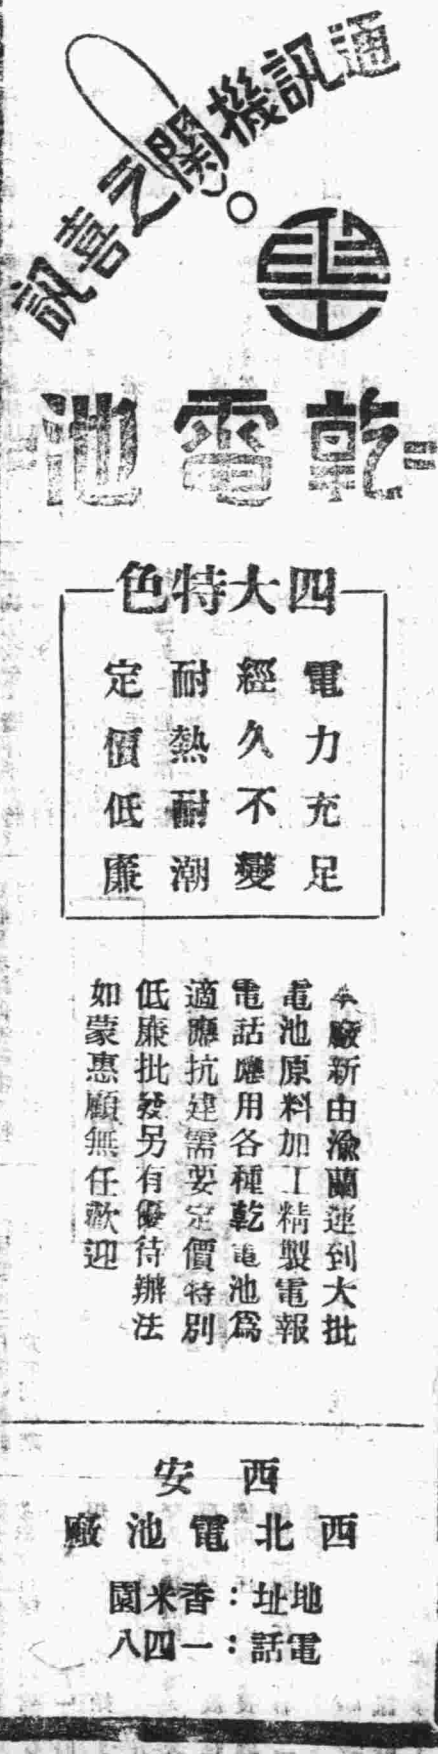 通訊機關之喜訊
乾電池
四大特色
電力充足
經久不變
耐熱耐潮
定價低廉
本廠新由渝蘭運到大批
電池原料加工精製電報
電話應用各種乾電池爲
適應抗建需要定價特別
低廉批發另有優待辦法
如蒙惠顧無任歡迎
西安
西北電池廠
地址：香米園
電話：一四八